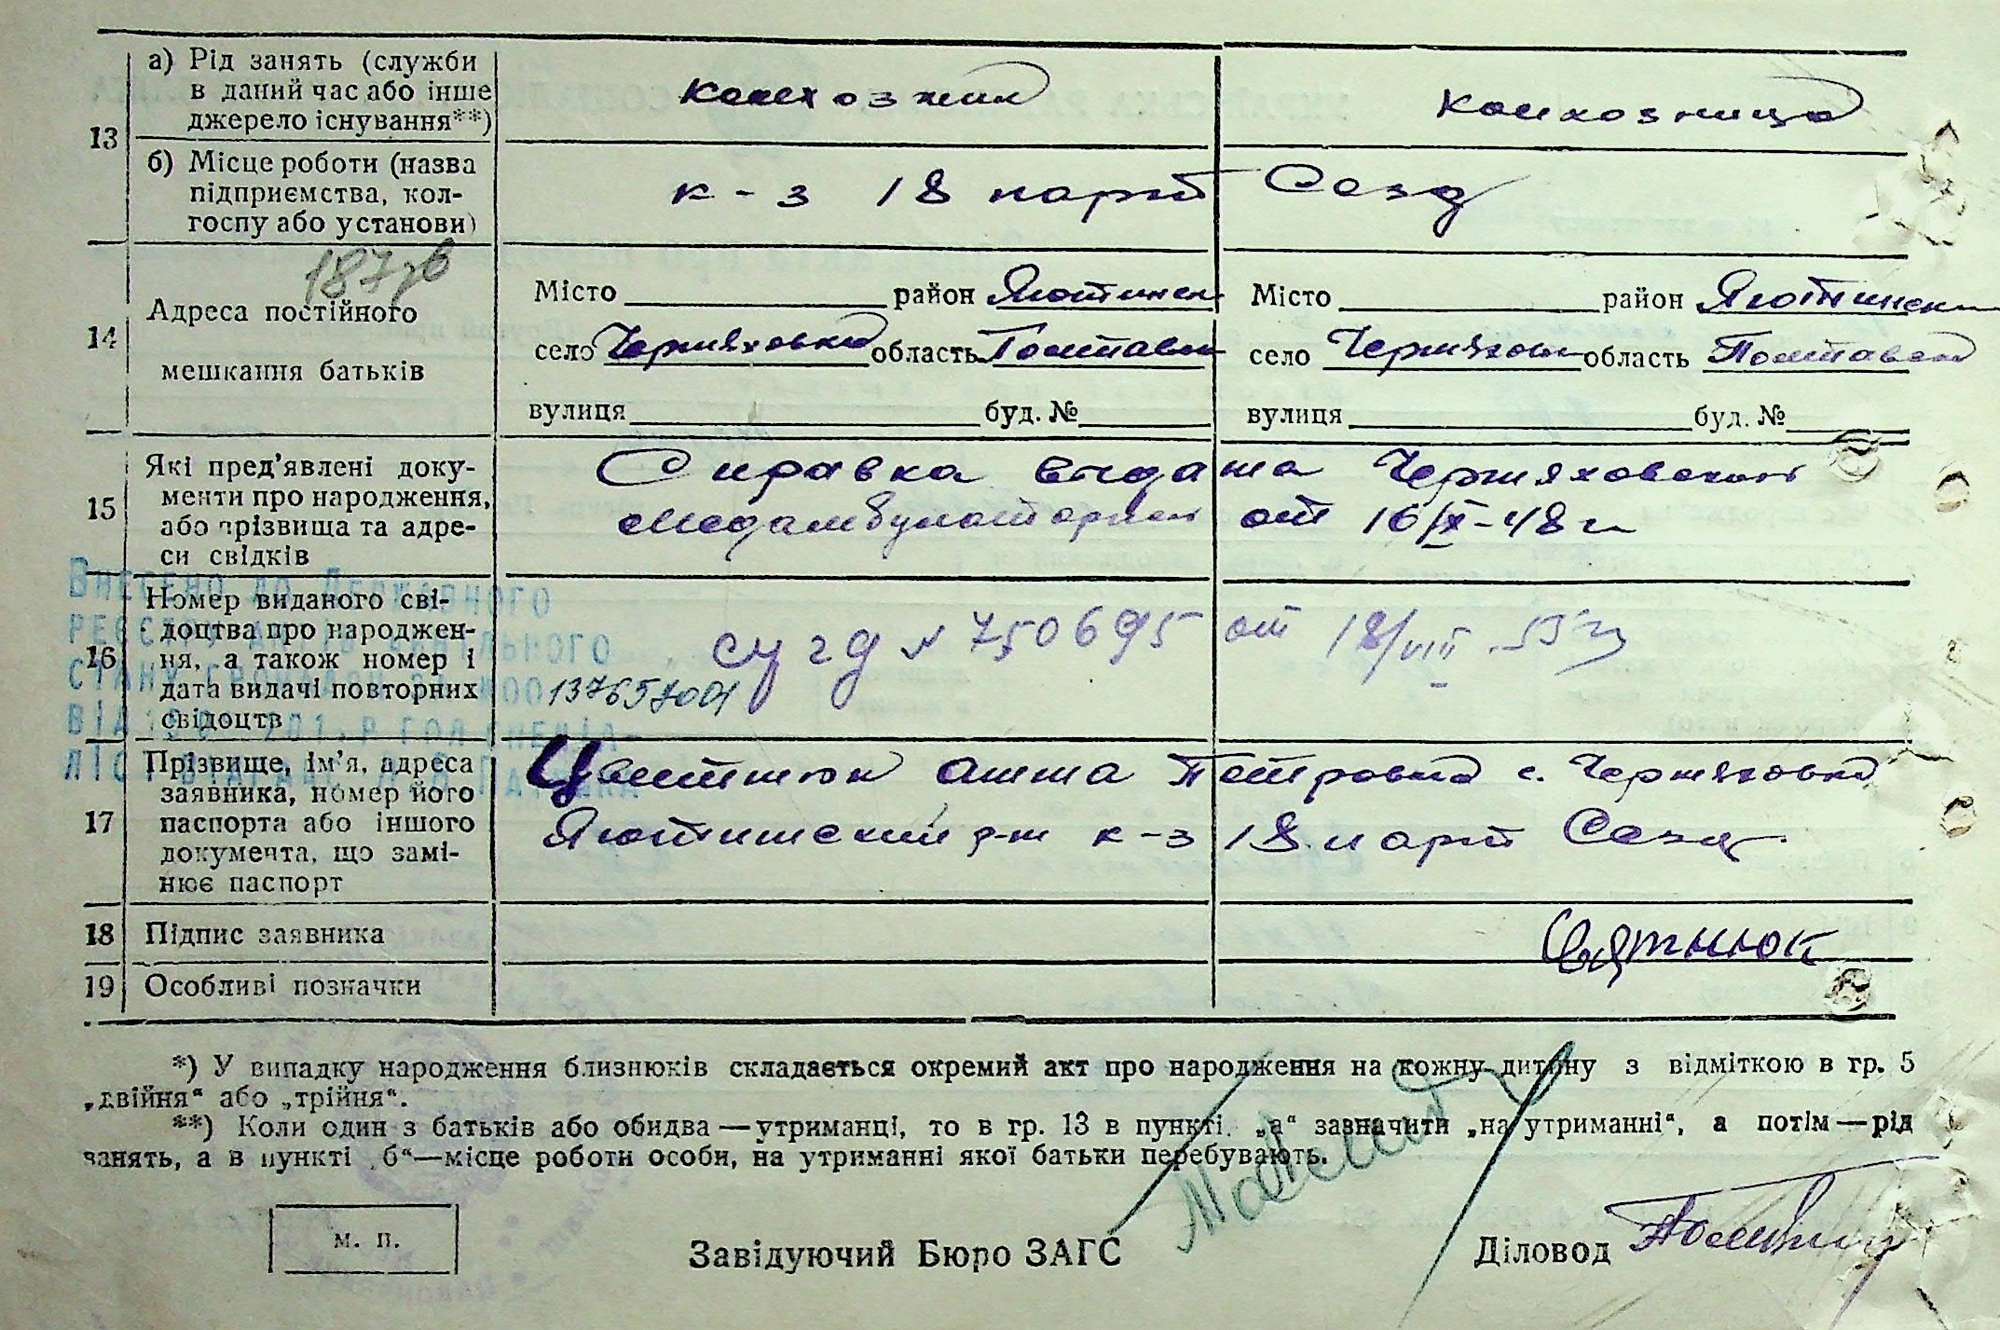 13
а) Рід занять (служби
в даний час або інше
джерело існування**)
колхозник
колхозница
б) Місце роботи (назва
підприємства, кол-
госпу або установи)
к-з 18 парт Сезд
14
Адреса постійного
мешкання батьків
Місто район Яготинск
село Черняховка область Полтавск
вулиця буд. №
Місто район Яготинск
село Черняховк область Полтавск
вулиця буд. №
15
Які пред'явлені доку-
менти про народження,
або прізвища та адре-
си свідків
Справка выдана Черняховской
медамбулаторией от 16/IX-48 г
16
Номер виданого сві-
доцтва про народжен-
ня, а також номер і
дата видачі повторних
свідоцтв
№ 750695 от 18/VIII-53 г
ВНЕСЕНО ДО ДЕРЖАВНОГО
17
Прізвище, ім'я, адреса
заявника, номер його
паспорта або іншого
документа, що замі-
нює паспорт
Петровна с. Черняховка
Яготинский р-н к-з 18 парт Сезд
18
Підпис заявника
19
Особливі позначки
*) У випадку народження близнюків складається окремий акт про народження на кожну дитину з відміткою в гр. 5
„двійня“ або „трійня“.
**) Коли один з батьків або обидва — утриманці, то в гр. 13 в пункті „а“ зазначити „на утриманні“, а потім — рід
занять, а в пункті „б“ — місце роботи особи, на утриманні якої батьки перебувають.
м. п.
Завідуючий Бюро ЗАГС
Діловод